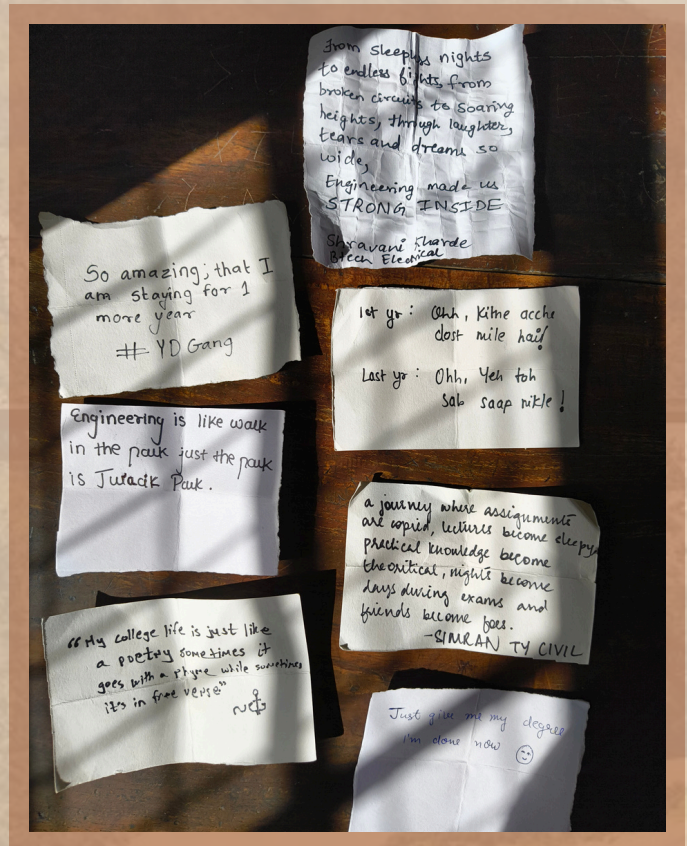 From sleepless nights
to endless fights, from
broken circuits to soaring
heights, through laughter,
tears and dreams so
wide,
Engineering made us
STRONG INSIDE
Shravani Kharde
Btech Electrical
So amazing, that I
am staying for 1
more year
# YD Gang
1st yr : Ohh, Kitne acche
dost mile hai!
Last yr : Ohh, Yeh toh
sab saap nikle !
Engineering is like walk
in the park just the park
is Jurassic Park.
a journey where assignments
are copied, lectures become sleepy,
practical knowledge become
theoritical, nights become
days during exams and
friends become foes.
-SIMRAN TY CIVIL
"My college life is just like
a poetry sometimes it
goes with a rhyme while sometimes
it's in free verse"
Just give me my degree
i'm done now